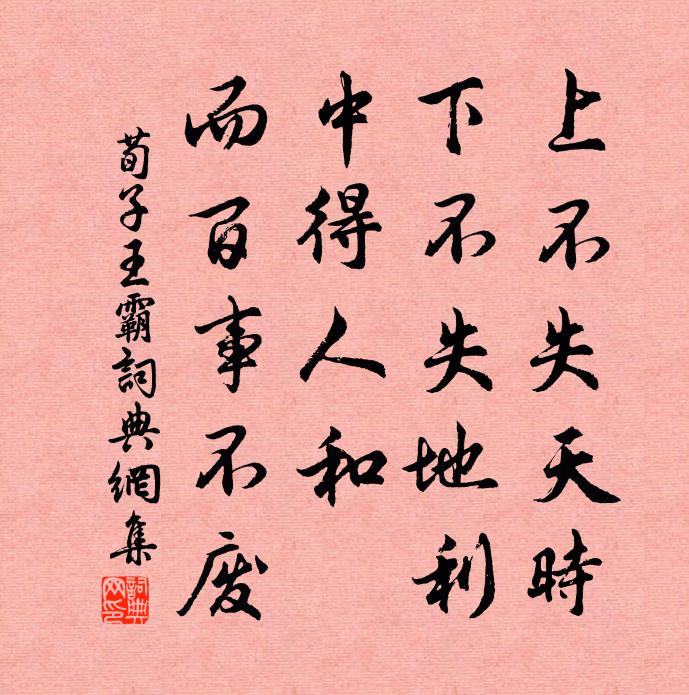 上不失天時
下不失地利
中得人和
而百事不废
荀子王霸詞典網集
詞典网印